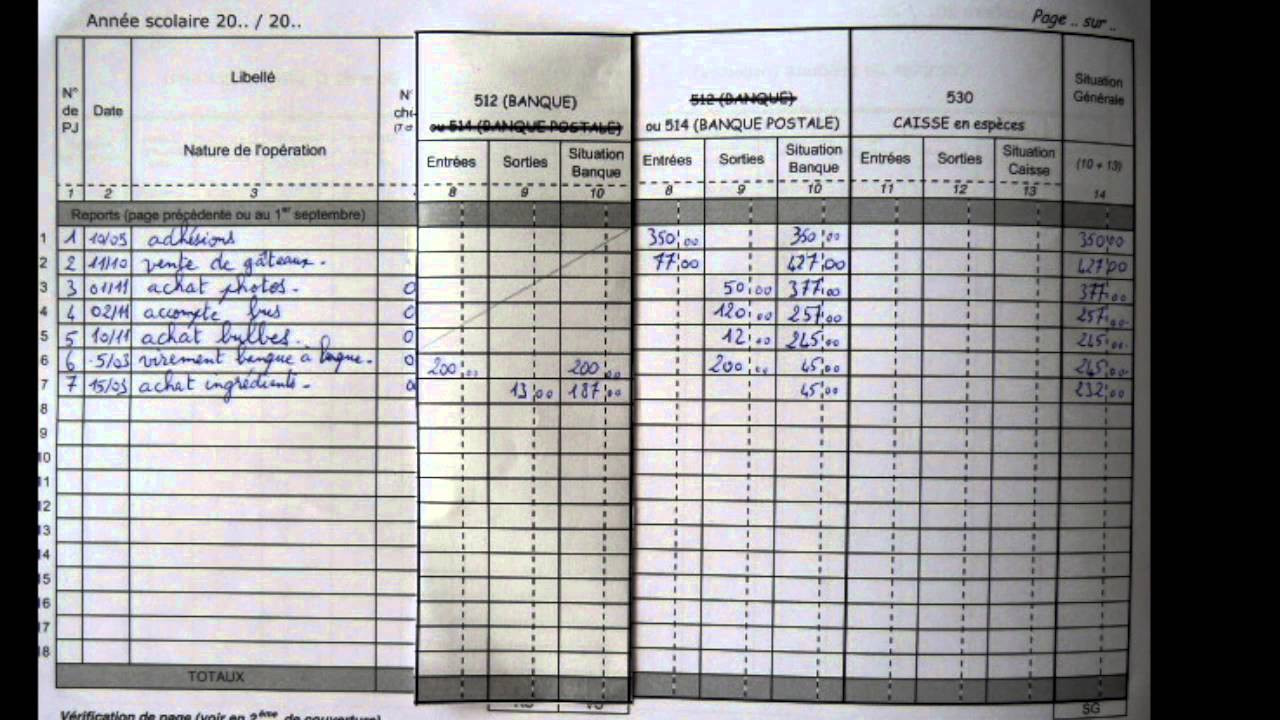 Année scolaire 20.. / 20..
Page .. sur ..
N° de PJ
Date
Libellé
Nature de l'opération
N°
512 (BANQUE)
ou 514 (BANQUE POSTALE)
512 (BANQUE)
ou 514 (BANQUE POSTALE)
530
CAISSE en espèces
Situation Générale
Entrées Sorties Situation Banque Entrées Sorties Situation Banque Entrées Sorties Situation Caisse (10 + 13)
1 2 3 8 9 10 8 9 10 11 12 13 14
Reports (page précédente ou au 1er septembre)
1 1 10/09 adhésions 350,00 350,00 350,00
2 2 11/10 vente de gâteaux. 77,00 427,00 427,00
3 3 01/11 achat photos. 0 50,00 377,00 377,00
4 4 02/11 accompte bus 0 120,00 257,00 257,00
5 5 10/11 achat bulbes. 0 12,00 245,00 245,00
6 6 5/03 virement banque à banque. 0 200,00 200,00 200,00 45,00 245,00
7 7 15/03 achat ingrédients. 13,00 187,00 45,00 232,00
8
9
10
11
12
13
14
15
16
17
18
TOTAUX
Vérification de page (voir en 2ème de couverture)
SG